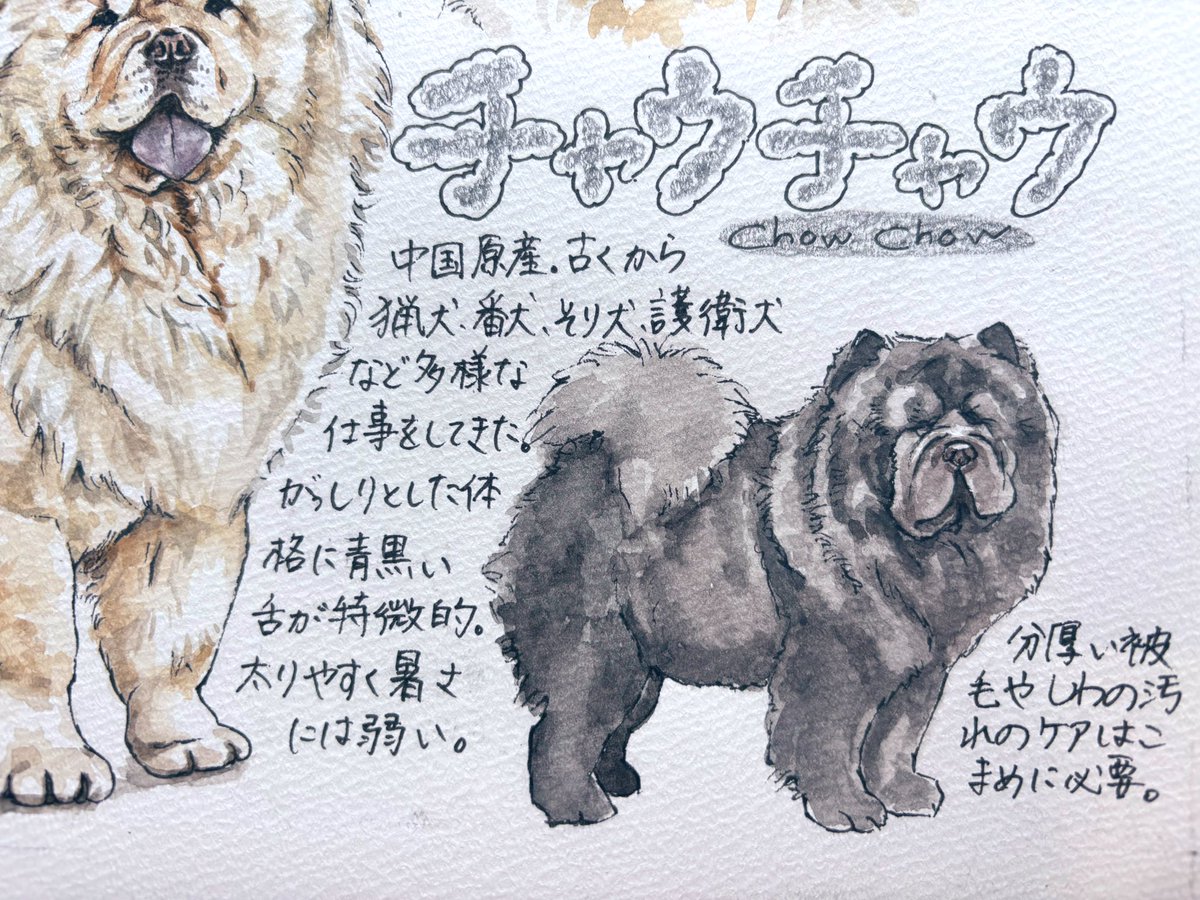 チャウチャウ
Chow Chow
中国原産。古くから
猟犬、番犬、そり犬、護衛犬
など多様な
仕事をしてきた。
がっしりとした体
格に青黒い
舌が特徴的。
太りやすく暑さ
には弱い。
分厚い被
毛やしわの汚
れのケアはこ
まめに必要。